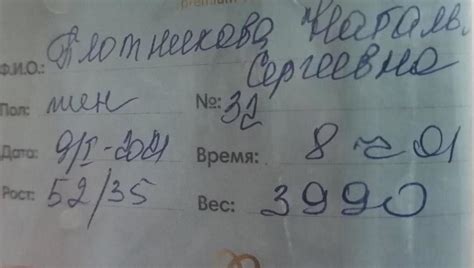 premium
Ф.И.О.: Плотникова Наталья
Сергеевна
Пол: жен №: 32
Дата: 9/I-2021 Время: 8 ч 01
Рост: 52/35 Вес: 3990